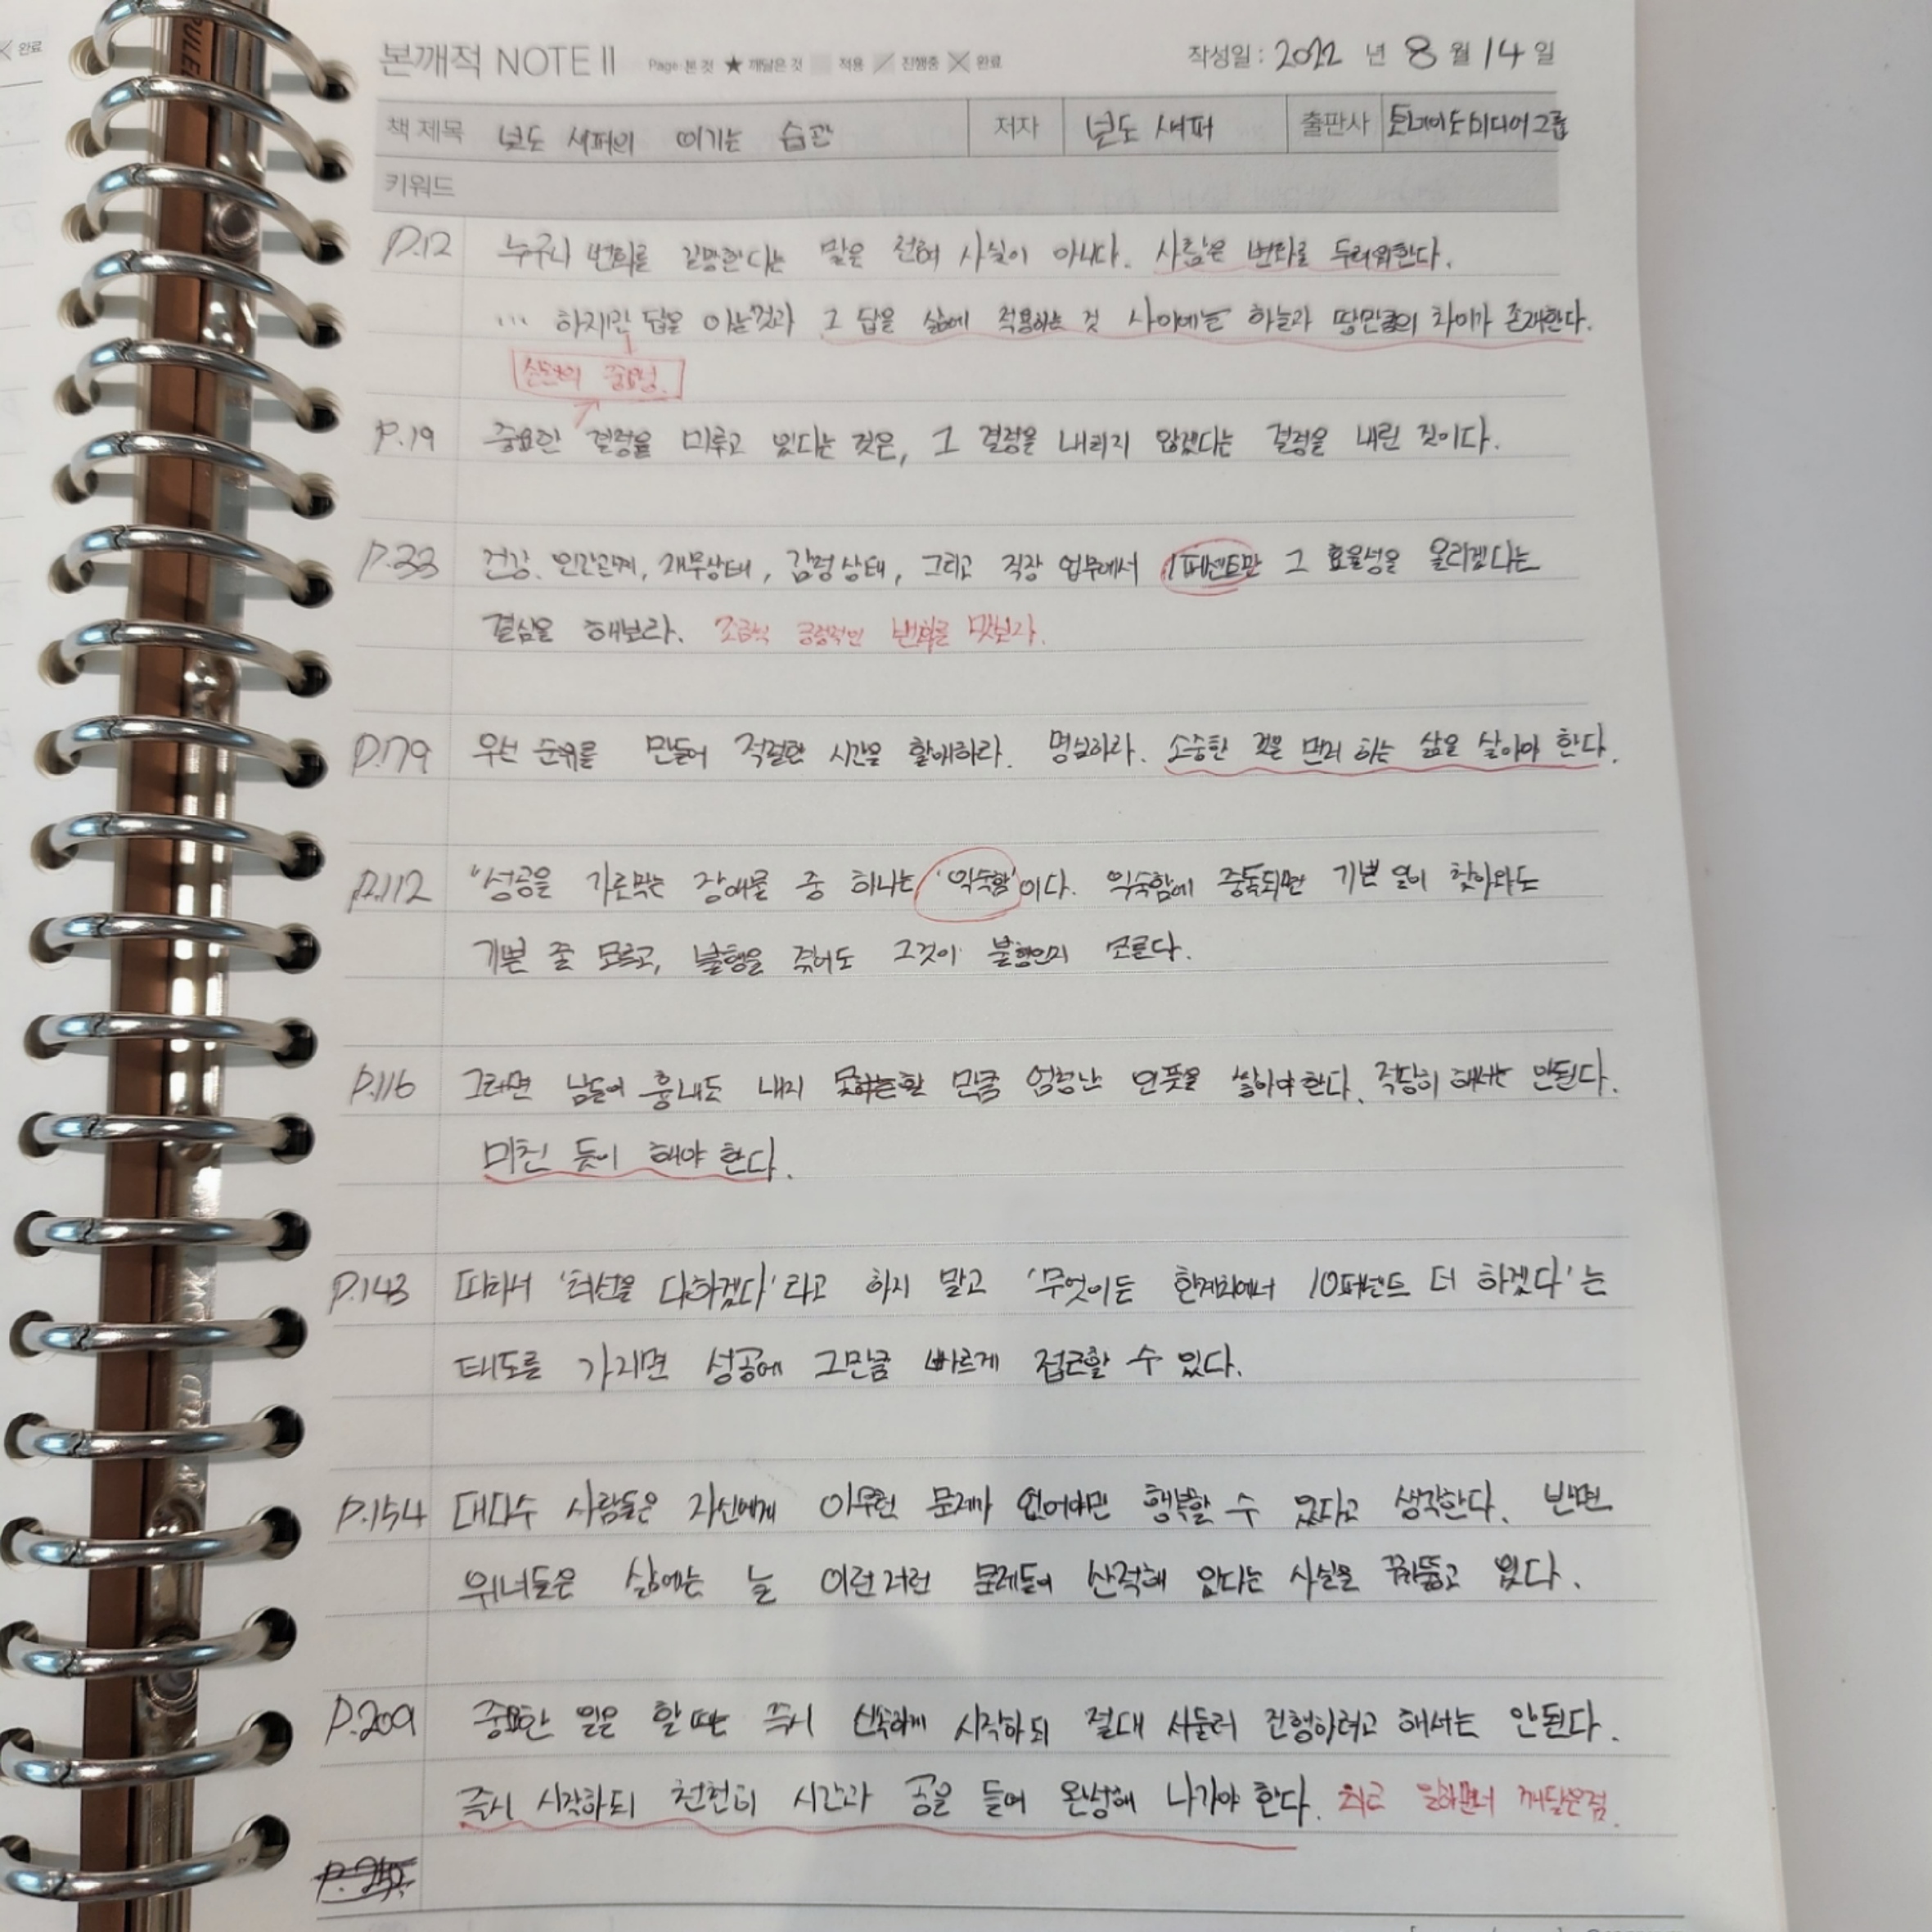 본깨적 NOTE II Page 본 것 ★ 깨달은 것 적용 진행중 완료 작성일 : 2022 년 8 월 14 일
책 제목 보도 섀퍼의 이기는 습관 저자 보도 섀퍼 출판사 토네이도미디어그룹
키워드
P.12 누구나 변화를 갈망한다는 말은 전혀 사실이 아니다. 사람은 변화를 두려워한다.
... 하지만 답을 아는것과 그 답을 삶에 적용하는 것 사이에는 하늘과 땅만큼의 차이가 존재한다.
실천의 중요성.
P.19 중요한 결정을 미루고 있다는 것은, 그 결정을 내리지 않겠다는 결정을 내린 것이다.
P.33 건강, 인간관계, 재무상태, 감정상태, 그리고 직장 업무에서 1퍼센트만 그 효율성을 올리겠다는
결심을 해보라. 조금씩 긍정적인 변화를 맛보자.
P.79 우선 순위를 만들어 적절한 시간을 할애하라. 명심하라. 소중한 것을 먼저 하는 삶을 살아야 한다.
P.112 "성공을 가로막는 장애물 중 하나는 '익숙함'이다. 익숙함에 중독되면 기쁜 일이 찾아와도
기쁜 줄 모르고, 불행을 겪어도 그것이 불행인지 모른다.
P.116 그러면 남들이 흉내도 내지 못할 만큼 엄청난 인풋을 쌓아야 한다. 적당히 해서는 안된다.
미친 듯이 해야 한다.
P.143 따라서 '최선을 다하겠다'라고 하지 말고 '무엇이든 한계치에서 10퍼센트 더 하겠다'는
태도를 가지면 성공에 그만큼 빠르게 접근할 수 있다.
P.154 대다수 사람들은 자신에게 아무런 문제가 없어야만 행복할 수 있다고 생각한다. 반면
위너들은 삶에는 늘 이런저런 문제들이 산적해 있다는 사실을 꿰뚫고 있다.
P.209 중요한 일을 할 때는 즉시 신속하게 시작하되 절대 서둘러 진행하려고 해서는 안된다.
즉시 시작하되 천천히 시간과 공을 들여 완성해 나가야 한다. 최근 일하면서 깨달은점.